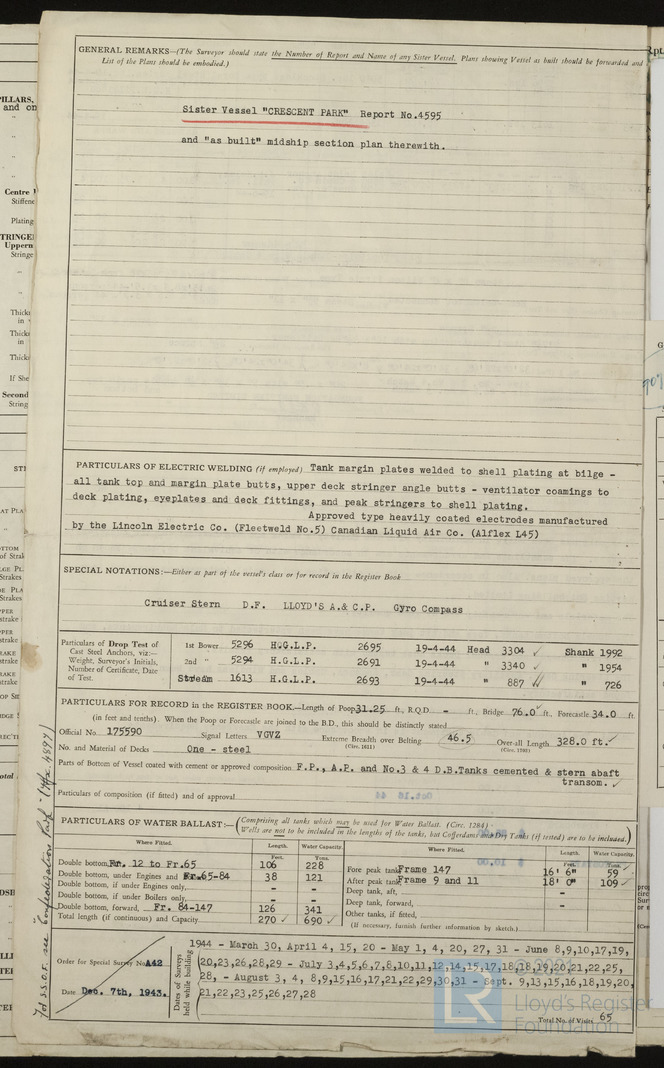 GENERAL REMARKS—(The Surveyor should state the Number of Report and Name of any Sister Vessel. Plans showing Vessel as built should be forwarded and
List of the Plans should be embodied.)
Sister Vessel "CRESCENT PARK" Report No.4595
and "as built" midship section plan therewith.
PARTICULARS OF ELECTRIC WELDING (if employed) Tank margin plates welded to shell plating at bilge -
all tank top and margin plate butts, upper deck stringer angle butts - ventilator coamings to
deck plating, eyeplates and deck fittings, and peak stringers to shell plating.
Approved type heavily coated electrodes manufactured
by the Lincoln Electric Co. (Fleetweld No.5) Canadian Liquid Air Co. (Alflex L45)
SPECIAL NOTATIONS:—Either as part of the vessel's class or for record in the Register Book
Cruiser Stern D.F. LLOYD'S A.& C.P. Gyro Compass
Particulars of Drop Test of Cast Steel Anchors, viz:— Weight, Surveyor's Initials, Number of Certificate, Date of Test.
1st Bower 5296 H.G.L.P. 2695 19-4-44 Head 3304 ✓ Shank 1992
2nd " 5294 H.G.L.P. 2691 19-4-44 " 3340 ✓ " 1954
Stream 1613 H.G.L.P. 2693 19-4-44 " 887 " 726
PARTICULARS FOR RECORD IN THE REGISTER BOOK.—Length of Poop 31.25 ft., R.Q.D. - ft., Bridge 76.0 ft., Forecastle 34.0 ft
(in feet and tenths). When the Poop or Forecastle are joined to the B.D., this should be distinctly stated
Official No. 175590 Signal Letters VGVZ Extreme Breadth over Belting (Circ. 1611) 46.5 Over-all Length (Circ. 1703) 328.0 ft. ✓
No. and Material of Decks One - steel
Parts of Bottom of Vessel coated with cement or approved composition F.P., A.P. and No.3 & 4 D.B.Tanks cemented & stern abaft
transom. ✓
Particulars of composition (if fitted) and of approval
PARTICULARS OF WATER BALLAST:—(Comprising all tanks which may be used for Water Ballast. (Circ. 1284)
Wells are not to be included in the lengths of the tanks, but Cofferdams and Dry Tanks (if tested) are to be included.)
Where Fitted. Length. Water Capacity. Where Fitted. Length. Water Capacity.
Feet. Tons. Feet. Tons.
Double bottom, Fr. 12 to Fr.65 106 228
Double bottom, under Engines and Fr.65-84 38 121
Double bottom, if under Engines only, - -
Double bottom, if under Boilers only, - -
Double bottom, forward, Fr. 84-147 126 341
Total length (if continuous) and Capacity 270 ✓ 690 ✓
Fore peak tank, Frame 147 16' 6" 59 ✓
After peak tank, Frame 9 and 11 18' 0" 109 ✓
Deep tank, aft, -
Deep tank, forward, -
Other tanks, if fitted,
(If necessary, furnish further information by sketch.)
Order for Special Survey No. A42
Date Dec. 7th, 1943.
Dates of Surveys held while building
1944 - March 30, April 4, 15, 20 - May 1, 4, 20, 27, 31 - June 8,9,10,17,19,
20,23,26,28,29 - July 3,4,5,6,7,8,10,11,12,14,15,17,18,18,19,20,21,22,25,
28, - August 3, 4, 8,9,15,16,17,21,22,29,30,31 - Sept. 9,13,15,16,18,19,20,
21,22,23,25,26,27,28
Total No. of Visits 65
For S.S.O.F. see "Confederation Park"
LR
Lloyd's Register
Foundation